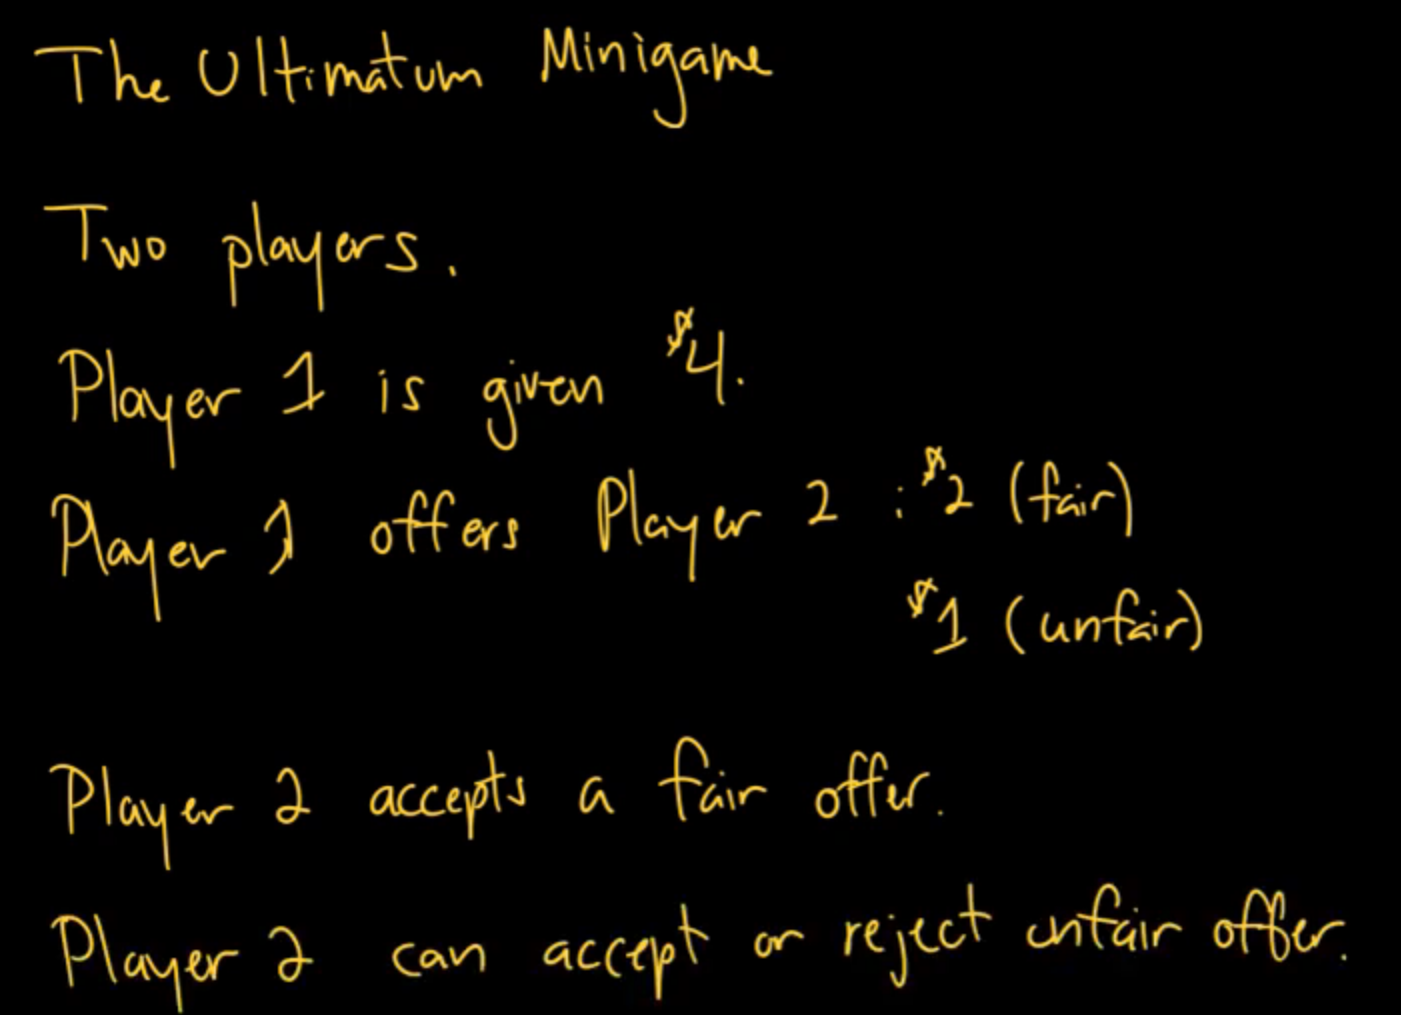 The Ultimatum Minigame
Two players.
Player 1 is given $4.
Player 1 offers Player 2 : $2 (fair)
$1 (unfair)
Player 2 accepts a fair offer.
Player 2 can accept or reject unfair offer.